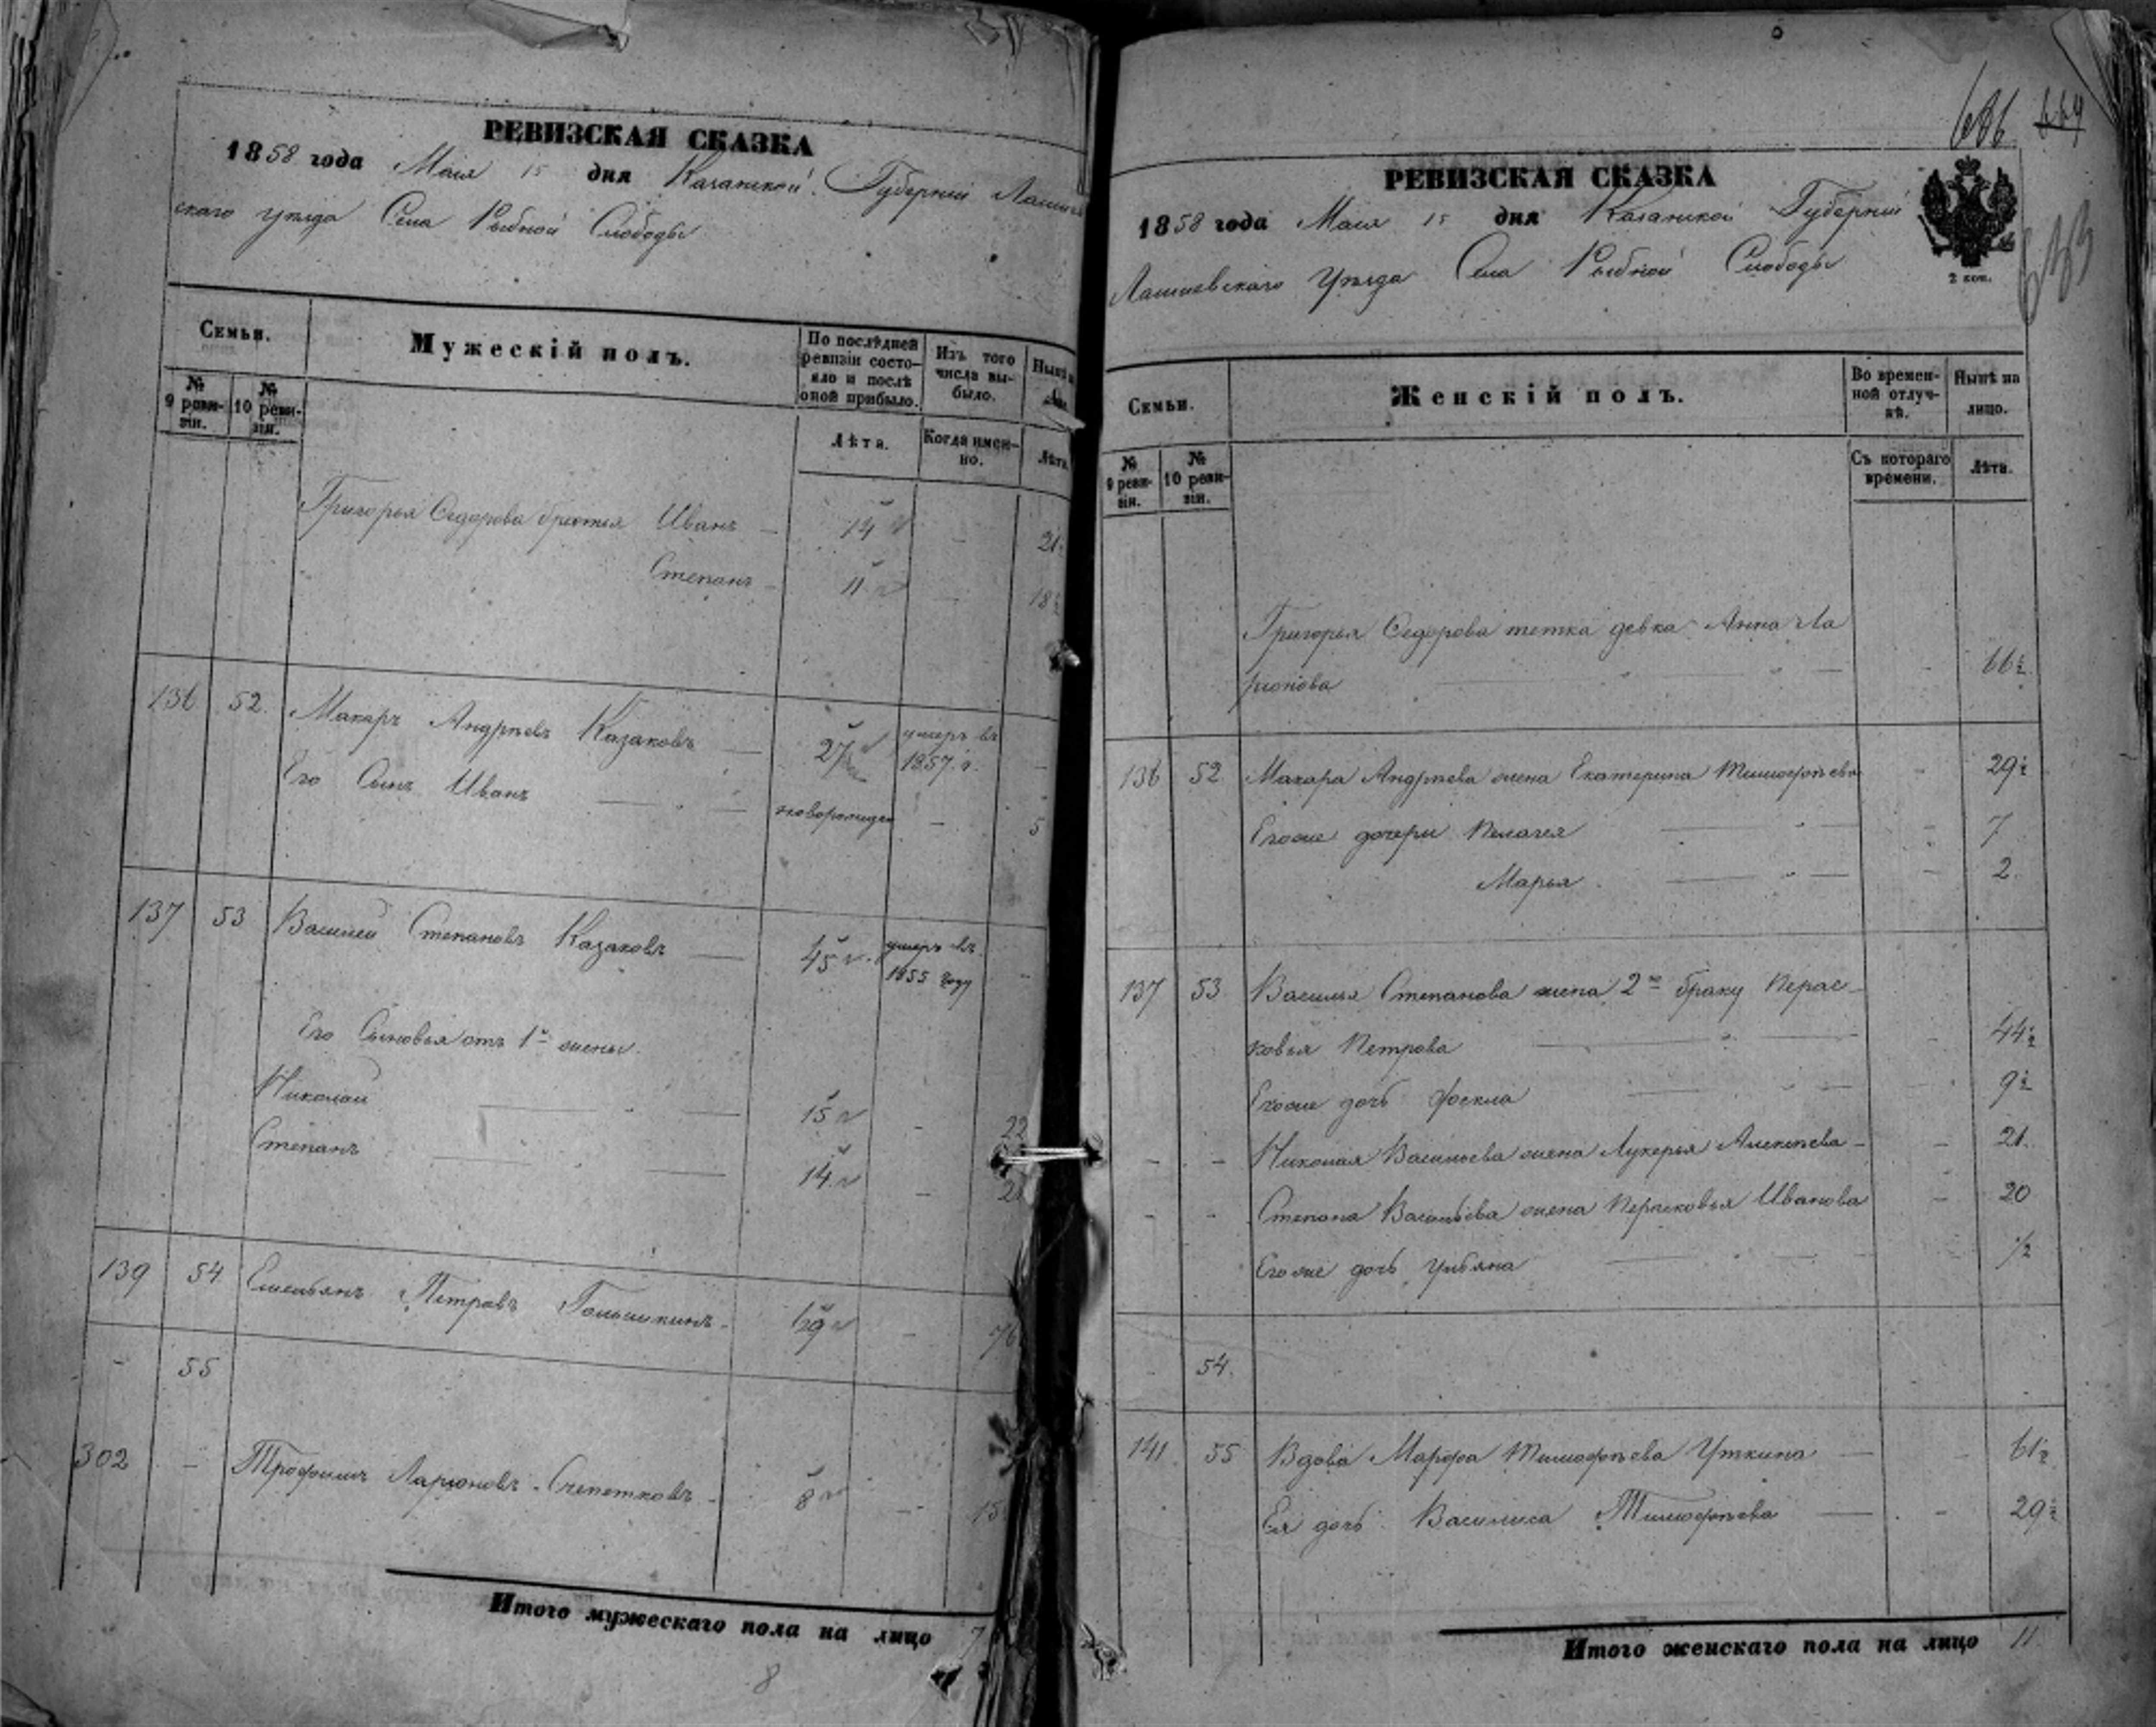 РЕВИЗСКАЯ СКАЗКА
1858 года Маія 15 дня Казанской Губерніи Лаишев
скаго уѣзда Села Рыбной Слободы
Семьи.
Мужескій полъ.
По послѣдней ревизіи состояло и послѣ оной прибыло.
Изъ того числа выбыло.
Нынѣ на
№ 9 ревизіи.
№ 10 ревизіи.
Лѣта.
Когда именно.
Лѣта.
Григорья Седорова братья Иванъ — 14 — 21
Степанъ — 11 — 18
136 52. Макаръ Андрѣевъ Казаковъ — 27 умеръ въ 1857 г. —
Его Сынъ Иванъ — новорожден — 5
137 53 Василей Степановъ Казаковъ — 45 умеръ въ 1855 году —
Его Сыновья отъ 1й жены.
Николай — 15 — 22
Степанъ — 14 — 21
139 54 Емельянъ Петровъ Голышкинъ — 69 — 76
- 55
302 — Трофимъ Ларионовъ Счепетковъ — 8 — 15
Итого мужескаго пола на лицо 7
8
686 664
РЕВИЗСКАЯ СКАЗКА
1858 года Маія 15 дня Казанской Губерніи
Лаишевскаго Уѣзда Села Рыбной Слободы
2 коп.
633
Семьи.
Женскій полъ.
Во временной отлучкѣ.
Нынѣ на лицо.
№ 9 ревизіи.
№ 10 ревизіи.
Съ котораго времени.
Лѣта.
Григорья Седорова тетка девка Анна Ла
рионова — 66½
136 52 Макара Андрѣева жена Екатерина Тимофѣева — 29½
Егоже дочери Пелагея — 7
Марья — 2.
137 53 Василья Степанова жена 2го браку Перас-
ковья Петрова — 44½
Егоже дочь Фекла — 9½
- - Николая Васильева жена Лукерья Алексѣева — 21.
- - Степана Васильева жена Перасковья Иванова — 20
Егоже дочь Ульяна — ½
- 54.
141 55 Вдова Марфа Тимофѣева Уткина — 61½
Ея дочь Василиса Тимофѣева — 29½
Итого женскаго пола на лицо 11